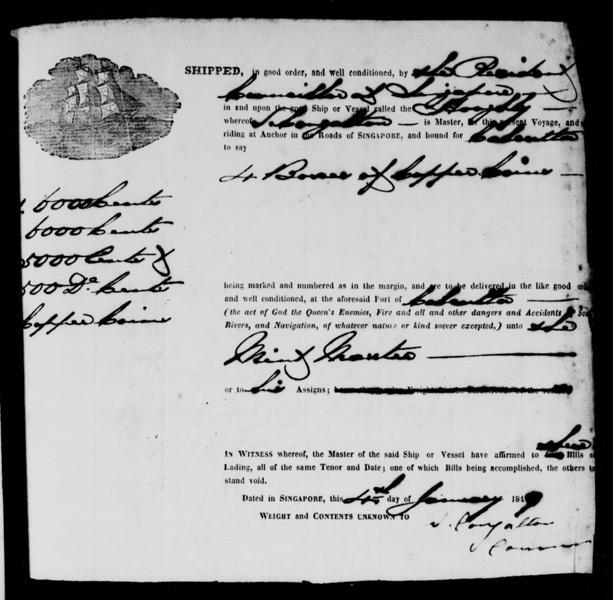 SHIPPED, in good order, and well conditioned, by the Resident
Councillor at Singapore
in and upon the good Ship or Vessel called the
whereof is Master, for this present Voyage, and
riding at Anchor in the Roads of SINGAPORE, and bound for Calcutta
to say
4 Boxes of Copper Coins
6000 Cents
6000 Cents
5000 Cents &
500 Do. Cents
Copper Coins
being marked and numbered as in the margin, and are to be delivered in the like good order
and well conditioned, at the aforesaid Port of Calcutta
(the act of God the Queen's Enemies, Fire and all and other dangers and Accidents of Seas
Rivers, and Navigation, of whatever nature or kind soever excepted,) unto the
Mint Master
or to his Assigns;
IN WITNESS whereof, the Master of the said Ship or Vessel have affirmed to three Bills of
Lading, all of the same Tenor and Date; one of which Bills being accomplished, the others to
stand void.
Dated in SINGAPORE, this 4th day of January 1849
WEIGHT and CONTENTS UNKNOWN TO